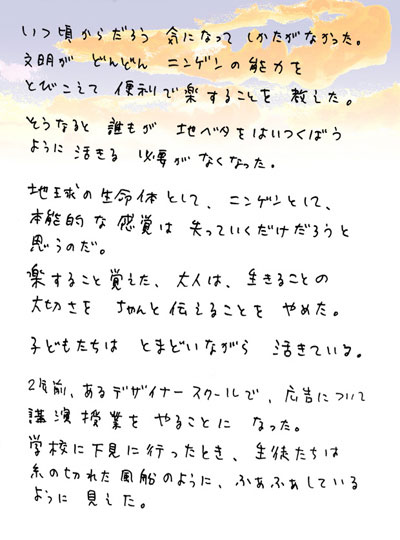 いつ頃からだろう 気になって しかたがなかった。
文明が どんどん ニンゲンの能力を
とびこえて 便利で楽することを 教えた。
そうなると 誰もが 地ベタをはいつくばう
ように 活きる 必要が なくなった。
地球の生命体として、ニンゲンとして、
本能的な感覚は 失っていくだけだろうと
思うのだ。
楽すること覚えた、大人は、生きることの
大切さを ちゃんと伝えることを やめた。
子どもたちは とまどいながら 活きている。
2年前、あるデザイナースクールで、広告について
講演授業を やることに なった。
学校に下見に行ったとき、生徒たちは
糸の切れた風船のように、ふあふあしている
ように 見えた。